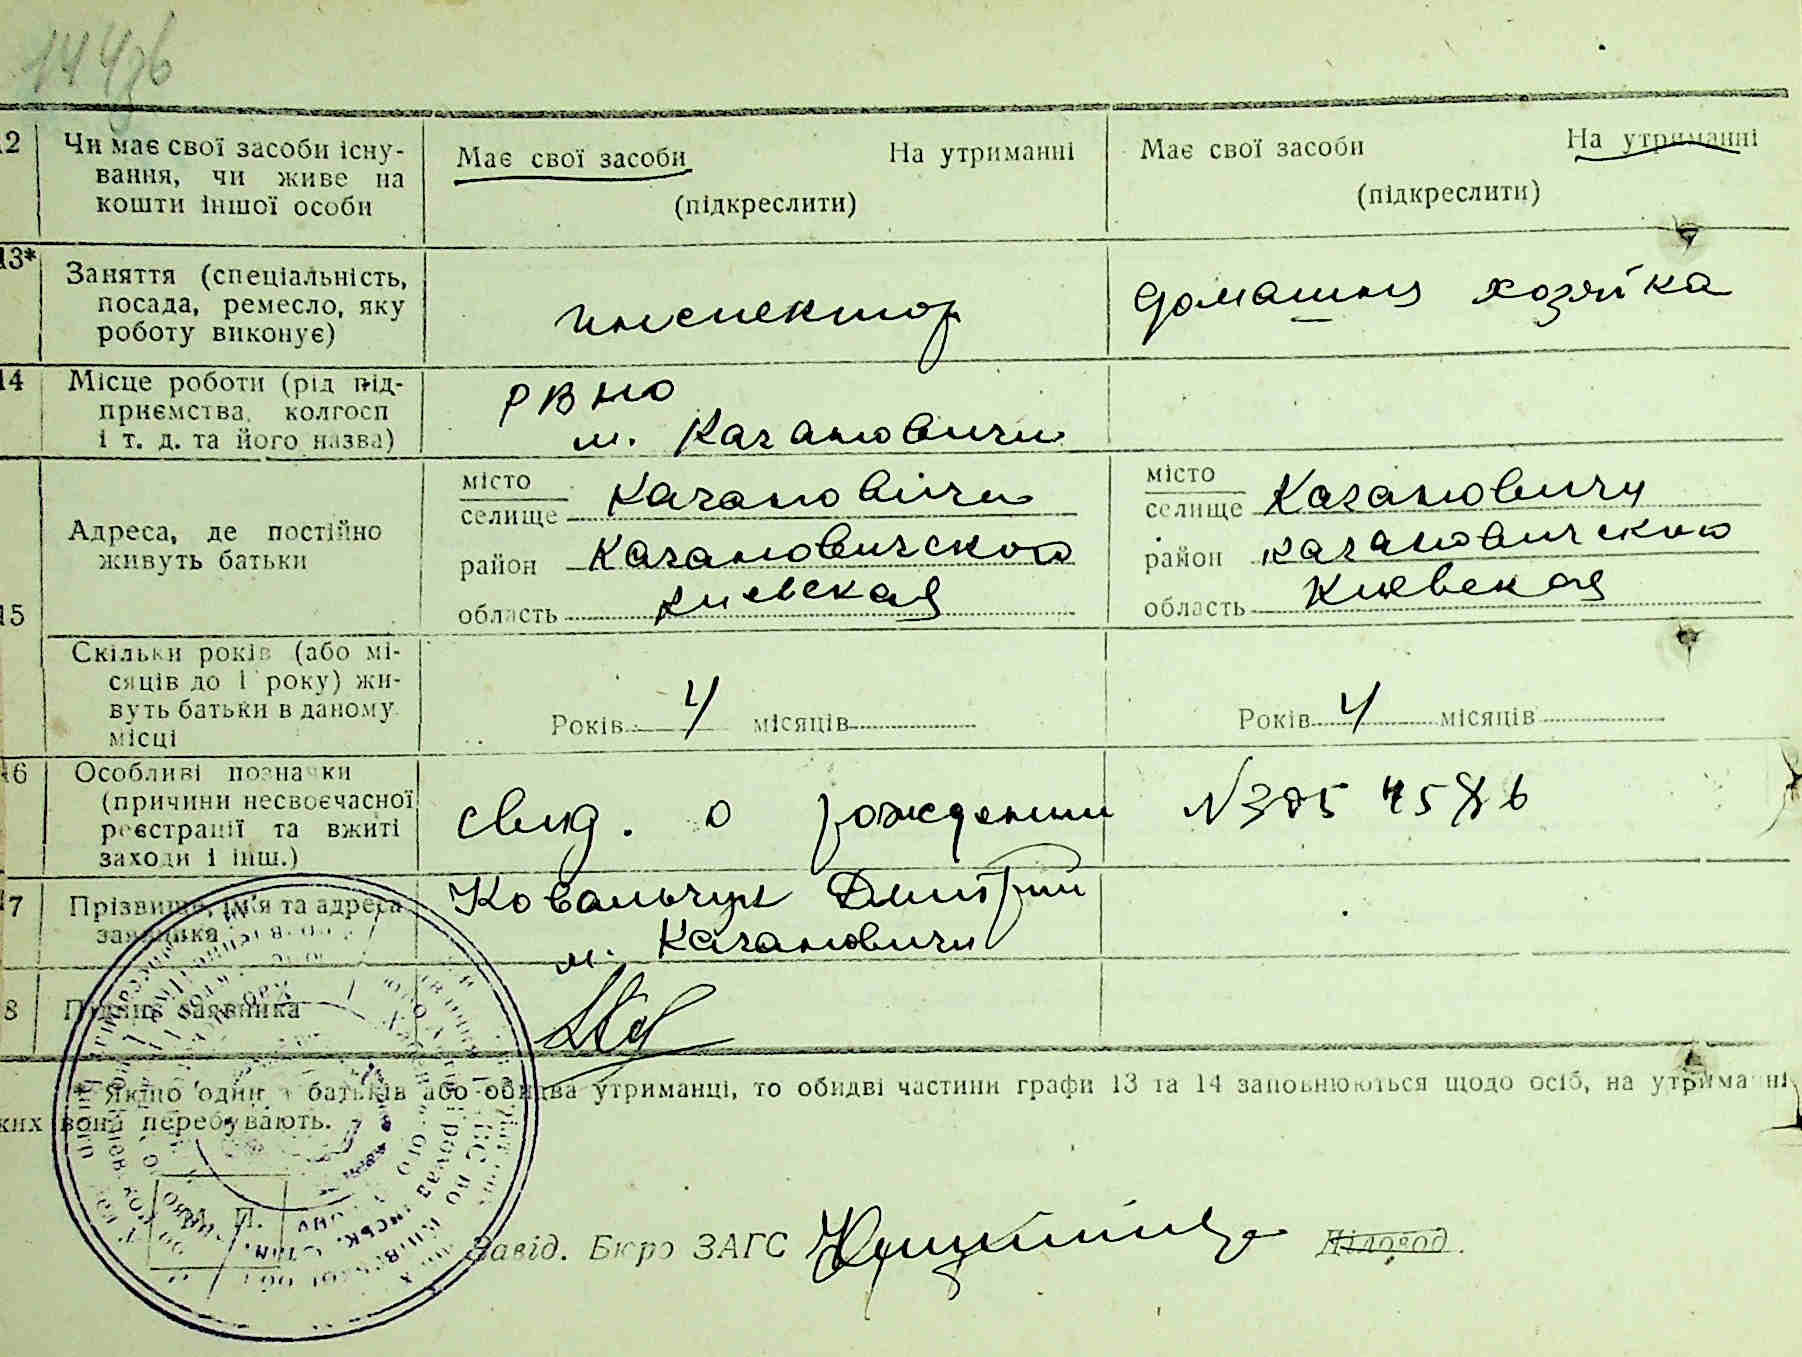 12 Чи має свої засоби існу-
вання, чи живе на
кошти іншої особи
Має свої засоби На утриманні
(підкреслити)
Має свої засоби На утриманні
(підкреслити)
13* Заняття (спеціальність,
посада, ремесло, яку
роботу виконує)
инспектор
домашняя хозяйка
14 Місце роботи (рід під-
приємства, колгосп
і т. д. та його назва)
РВНО
м. Кагановичи
15 Адреса, де постійно
живуть батьки
місто
селище Кагановичи
район Кагановичского
область Киевская
місто
селище Кагановичи
район Кагановичского
область Киевская
Скільки років (або мі-
сяців до 1 року) жи-
вуть батьки в даному
місці
Років 4 місяців
Років 4 місяців
16 Особливі позначки
(причини несвоєчасної
реєстрації та вжиті
заходи і інш.)
свид. о рождении №
17 Прізвище, ім'я та адреса
заявника
Ковальчук Дмитрий
м. Кагановичи
18 Підпис заявника
* Якщо один з батьків або обидва утриманці, то обидві частини графи 13 та 14 заповнюються щодо осіб, на утриманні
яких вони перебувають.
М. П.
Завід. Бюро ЗАГС Діловод.